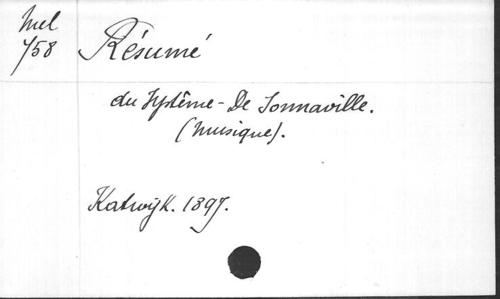 Mel
758
Résumé
du Système - De Sonnaville.
(Musique).
Katwijk. 1897.